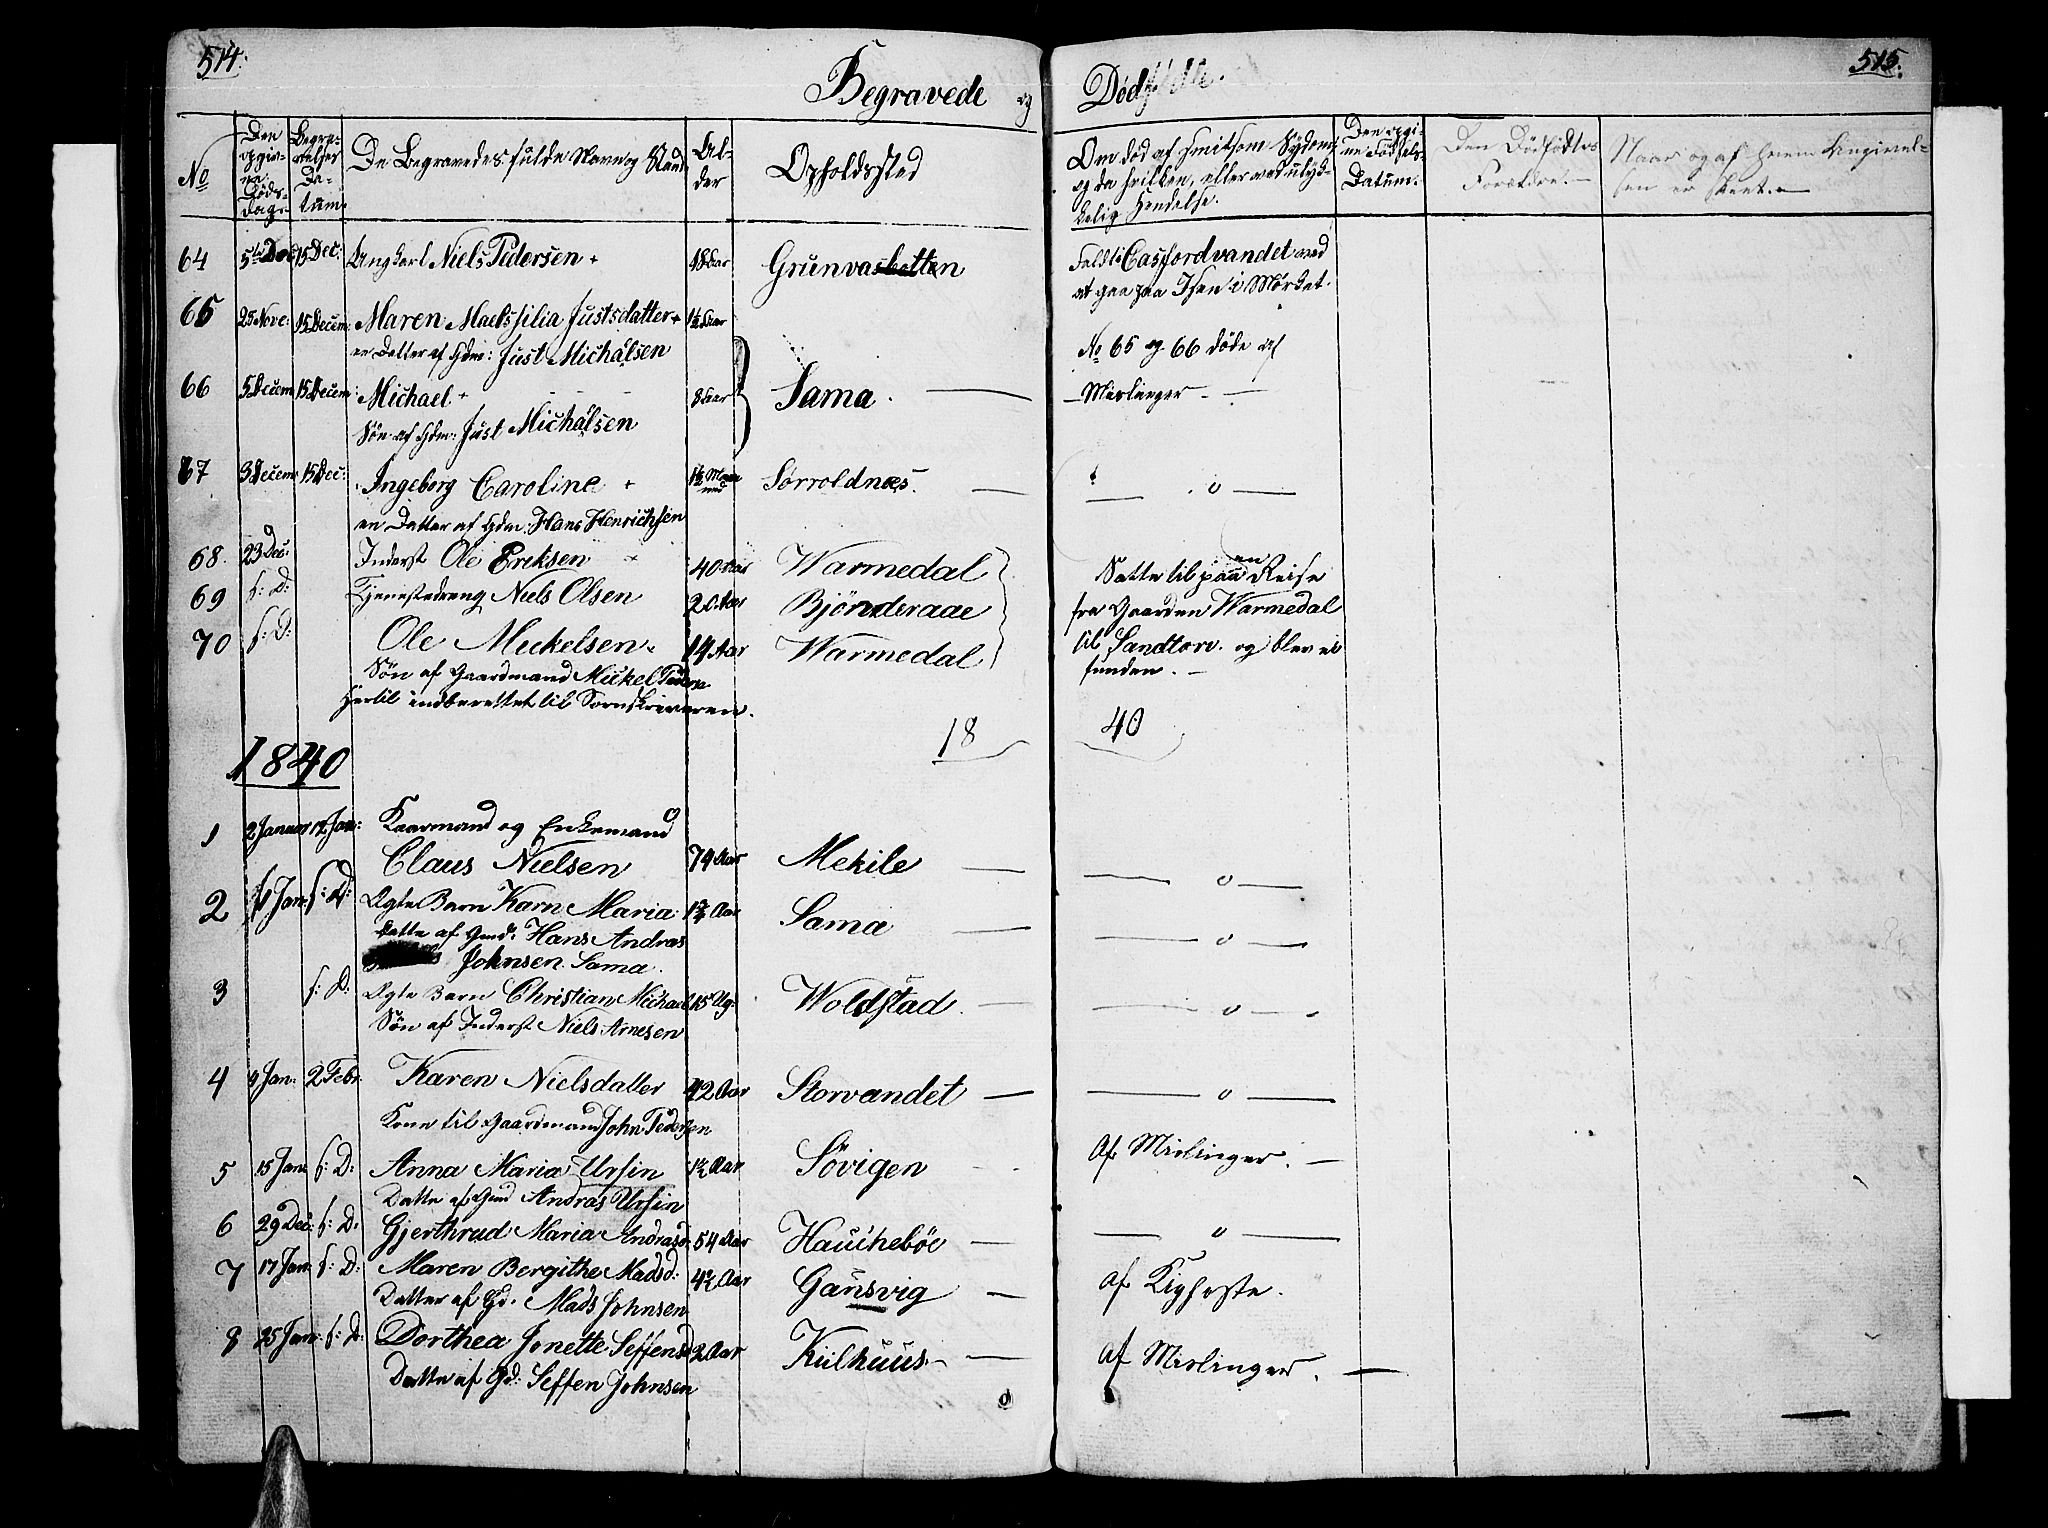 514.
515.
Begravede og Dødfødte.
No
Den opgivne Dødsdag.
Begravelses Datum.
De Begravedes fulde Navn og Stand
Alder
Opholdssted
Om død af smitsom Sydom og da hvilken, eller ved ulykkelig Hendelse.
Den opgivne Fødsels Datum.
Den Dødfødtes Forældre.
Naar og af hvem Angivelsen er skeet.
64 5te Dec 15 Dec: Ungkarl Niels Pedersen + 18 Aar Grunvasbotten Faldt i Casfjordvandet ved
at gaa paa Isen i Mørket.
65 25 Nove: 15 Decem: Maren Justsdatter + 1½ Aar
en Datter af Gdm: Just Michalsen No 65 og 66 døde af
66 5 Decem 15 Decem: Michael + 8 Aar Sama. — Meslinger —
Søn af Gdm: Just Michälsen
67 3 Decem 15 Dec: Ingeborg Caroline + 1½ Maaned Sørroldnæs. — o —
en Datter af Gdm: Hans Henrichsen
68. 23 Dec: Inderst Ole Eriksen + 40 Aar Warmedal Satte til paa en Reise
69 s: D: Tjenestedreng Niels Olsen 20 Aar Bjönderaae fra Gaarden Warmedal
70 s: D: Ole Mickelsen 14 Aar Warmedal til Sandtorv. og blev ei
Søn af Gaardmand Mickel Peders funden. —
Hertil indberettet til Sorenskriveren.
18 40
1840
1 2 Januar 12 Jan: Kaarmand og Enkemand
Claus Nielsen 74 Aar Mekile — o —
2 Jan: s: D: Ægte Barn Karn Maria 1¾ Aar Sama — o —
Datte af Gmd: Hans Andras
Johnsen Sama.
3 s: D: Ægte Barn Christian Michael 15 Ug: Woldstad — o —
Søn af Inderst Niels Arnesen
4 9 Jan: 2 Febr. Karen Nielsdatter 42 Aar Storvandet — o —
Kone til Gaardmand John Pedersen
5 15 Jan: s: D: Anna Maria Ursin 1½ Aar Sövigen Af Meslinger. —
Datte af Gmd Andras Ursin
6 29 Dec: s: D: Gjerthrud Maria Andrasd: 54 Aar Hauchebøe — o —
7 17 Jan: s: D: Maren Bergithe Madsd: 4½ Aar Gansvig — af Kighoste.
Datter af Gd. Mads Johnsen
8 25 Jan: s: D: Dorthea Jonette Seffensd 2 Aar Kiilhuus — af Meslinger. —
Datte af Gd: Seffen Johnsen